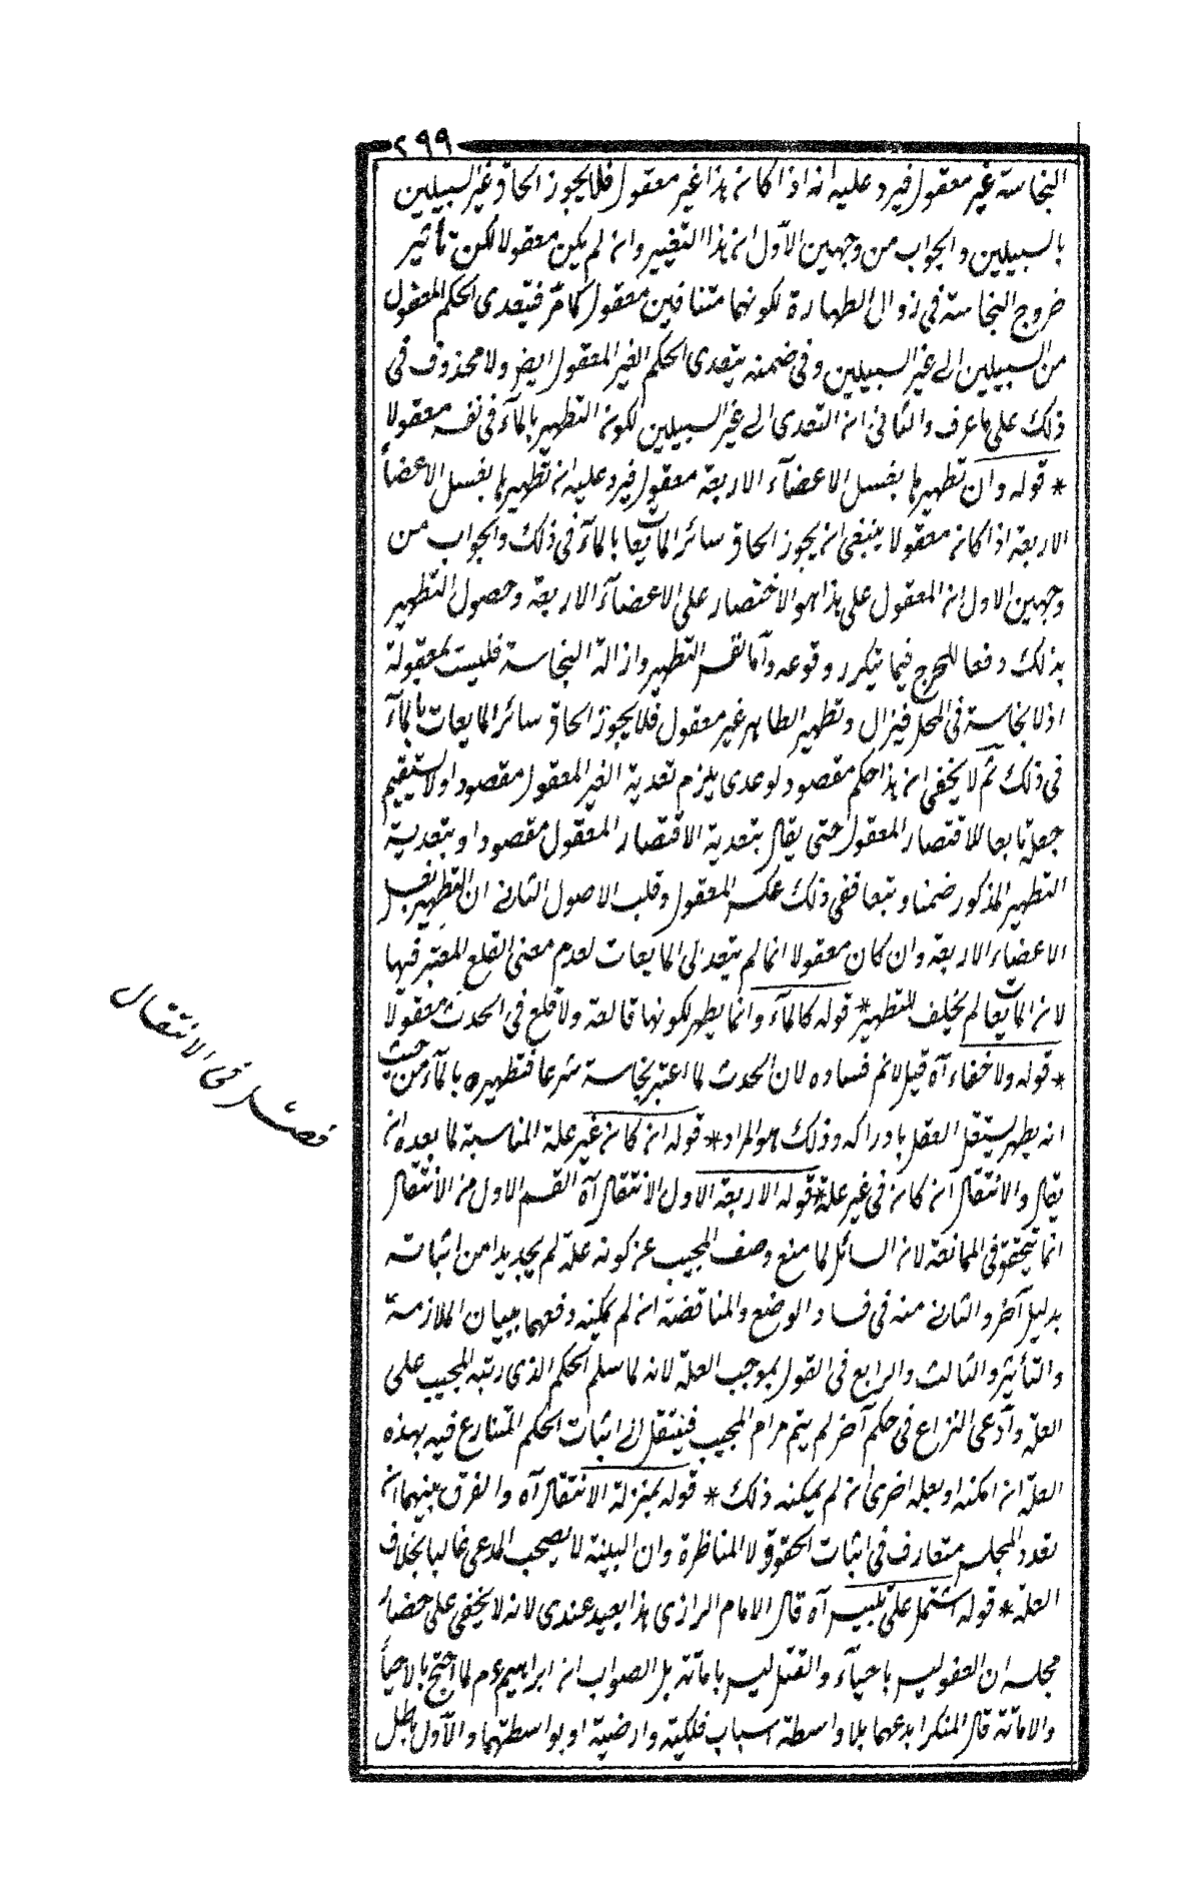 ٢٩٩
النجاسة غير معقول فيرد عليه انه اذا كان هذا غير معقول فلا يجوز الحاق غير السبيلين
بالسبيلين والجواب من وجهين الاول ان هذا التغيير وان لم يكن معقولا لكن تأثير
خروج النجاسة فى زوال الطهارة لكونهما متنافيين معقول كما مر فيتعدى الحكم المعقول
من السبيلين الى غير السبيلين وفى ضمنه يتعدى الحكم الغير المعقول ايض ولا محذوف فى
ذلك على ما عرف والثانى ان التعدى الى غير السبيلين لكون التطهير بالمآء فى نفسه معقولا
* قوله وان تطهيرها بغسل الاعضآء الاربعة معقول فيرد عليه ان تطهيرها بغسل الاعضأ
الاربعة اذا كان معقولا ينبغى ان يجوز الحاق سائر المايعات بالمآء فى ذلك والجواب من
وجهين الاول ان المعقول على هذا هو الاختصار على الاعضآء الاربعة وحصول التطهير
بذلك دفعا للحرج فيما يتكرر وقوعه وأما نفس التطهير وازالة النجاسة فليست بمعقولة
اذ لا نجاسة فى المحل فيزال وتطهير الطاهر غير معقول فلا يجوز الحاق سائر المايعات بالمآء
فى ذلك ثم لا يخفى ان هذا حكم مقصود لو عدى يلزم تعدية الغير المعقول مقصودا ولا يستقيم
جعله تابعا للاقتصار المعقول حتى يقال بتعدية الاقتصار المعقول مقصودا وبتعدية
التطهير المذكور ضمنا وتبعا ففى ذلك عكس المعقول وقلب الاصول الثانى ان التطهير بغسل
الاعضاء الاربعة وان كان معقولا انما لم يتعد الى المايعات لعدم معنى القلع المعتبر فيها
لان المايعات لم يخلف للتطهير * قوله كالمآء وانما يطهر لكونها قالعة ولا قلع فى الحدث معقولا
* قوله ولا خفاء آه قيل لا نم فساده لان الحدث لما اعتبر نجاسة شرعا فتطهيره بالمآء من حيث
انه يطهر يستقل العقل بادراكه وذلك هو المراد * قوله ان كان غير علة المناسبة لما بعده ان
يقال والانتقال ان كان فى غير علة * قوله الاربعة الاول الانتقال آه القسم الاول من الانتقال
انما يتحقق فى الممانعة لان السائل لما منع وصف المجيب عن كونه علة لم يجد بدا من اثباته
بدليل آخر والثانى منه فى فساد الوضع والمناقضة ان لم يمكنه دفعهما ببيان الملازمة
والتأثير والثالث والرابع فى القول بموجب العلة لانه لما سلم الحكم الذى رتبه المجيب على
العلة وآدعى النزاع فى حكم آخر لم يتم مرام المجيب فينتقل الى اثبات الحكم المتنازع فيه بهذه
العلة ان امكنه او بعلة اخرى ان لم يمكنه ذلك * قوله بمنزلة الانتقال آه والفرق بينهما ان
تعدد المجلس متعارف فى اثبات الحقوق لا المناظرة وان البينة لا يصحب المدعى غالبا بخلاف
العلة * قوله اشتمل على تلبيس آه قال الامام الرازى هذا بعيد عندى لانه لا يخفى على حضار
مجلسه ان العفو ليس باحيآء والقتل ليس باماتة بل الصواب ان ابراهيم عم لما احتج بالاحيأ
والاماتة قال المنكر ابدعهما بلا واسطة اسباب فلكية وارضية او بواسطتهما والاول باطل
فصل فى الانتقال